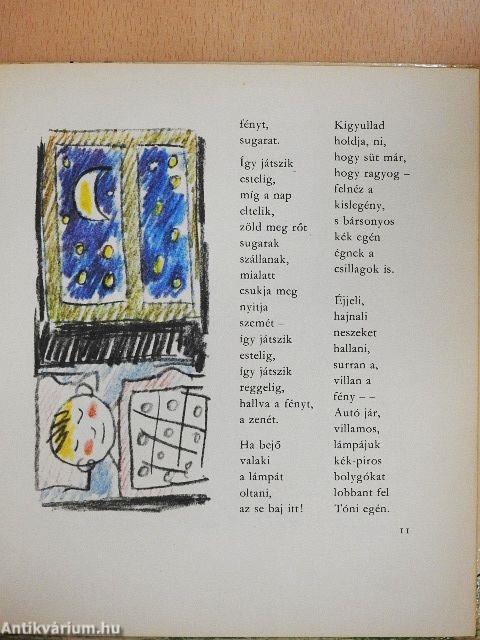 fényt,
sugarat.
Így játszik
estelig,
míg a nap
eltelik,
zöld meg rőt
sugarak
szállanak,
mialatt
csukja meg
nyitja
szemét –
így játszik
estelig,
így játszik
reggelig,
hallva a fényt,
a zenét.
Ha bejő
valaki
a lámpát
oltani,
az se baj itt!
Kigyullad
holdja, ni,
hogy süt már,
hogy ragyog –
felnéz a
kislegény,
s bársonyos
kék egén
égnek a
csillagok is.
Éjjeli,
hajnali
neszeket
hallani,
surran a,
villan a
fény – –
Autó jár,
villamos,
lámpájuk
kék-piros
bolygókat
lobbant fel
Tóni egén.
11
Antikvárium.hu